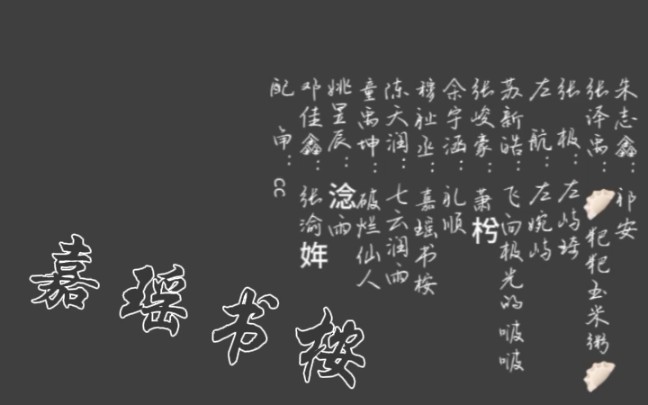 朱志鑫：祁安
张泽禹：🥟犯犯玉米粥🥟
张极：左屿珸
左航：左婉屿
苏新皓：飞向极光的啵啵
张峻豪：萧枍
余宇涵：礼顺
穆祉丞：嘉瑶书桉
陈天润：七云润雨
童禹坤：破烂仙人
姚昱辰：淰雨
邓佳鑫：张渝姩
配角：cc
嘉瑶书桉